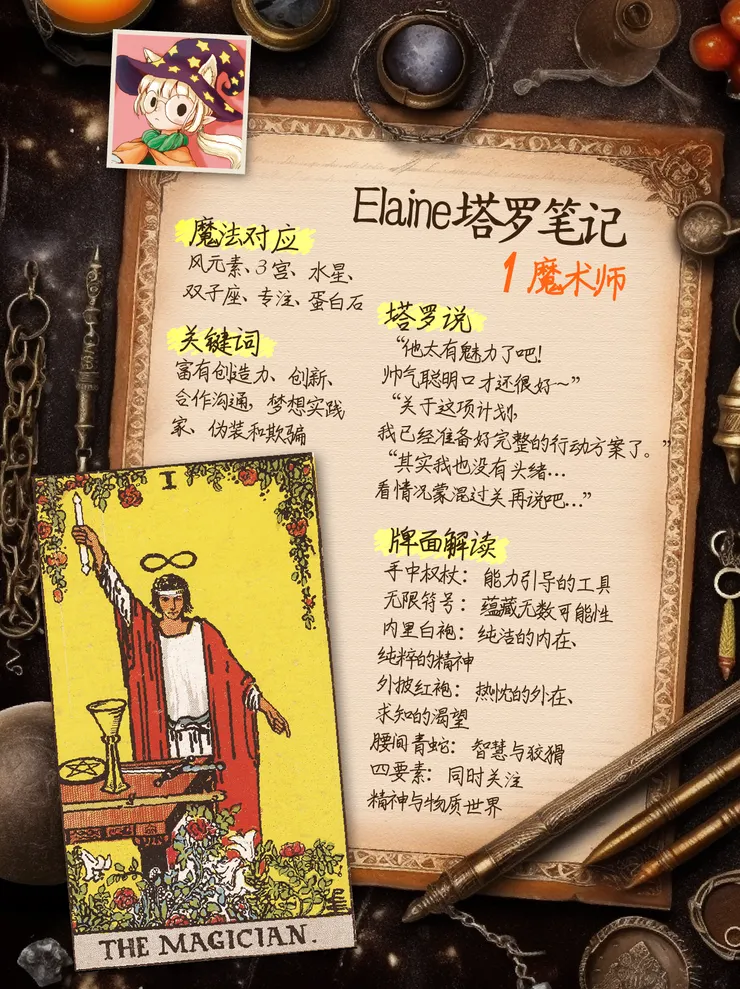 Elaine塔罗笔记
1 魔术师
魔法对应
风元素、3宫、水星、
双子座、专注、蛋白石
关键词
富有创造力、创新、
合作沟通，梦想实践
家、伪装和欺骗
塔罗说
“他太有魅力了吧！
帅气聪明口才还很好~”
“关于这项计划，
我已经准备好完整的行动方案了。”
“其实我也没有头绪...
看情况蒙混过关再说吧...”
牌面解读
手中权杖：能力引导的工具
无限符号：蕴藏无数可能性
内里白袍：纯洁的内在、
纯粹的精神
外披红袍：热忱的外在、
求知的渴望
腰间青蛇：智慧与狡猾
四要素：同时关注
精神与物质世界
I
THE MAGICIAN.